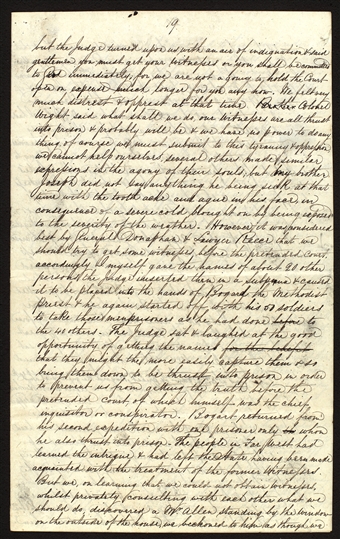 19
but the Judge turned upon us with an air of indignation & said
gentlemen you must get your witnesses or you shall be committed
to jail immediately, for we are not a going to hold the Court
open on expense much longer for you any how. We felt very
much distrest & opprest at that time Colonel
Wight said what shall we do our witnesses are all thrust
into prison & probably will be & we have no power to do any
thing of course we must submit to this tyranny & oppression
we cannot help ourselves, several others made similar
expressions in the agony of their souls, but my brother
Joseph did not say any thing he being sick at that
time with the tooth ache and ague in his face in
consequence of a severe cold brought on by being exposed
to the severity of the weather. However it was considered
best by General Donaphan & Lawyer Reece that we
should try to get some witnesses before the pretended Court.
accordingly I myself gave the names of about 20 other
persons; the Judge inserted them in a subpoena & caused
it to be placed into the hands of Bogard the Methodist
priest & he again started off with his 50 soldiers
to take those men prisoners as he had done before to
the 40 others. The Judge sat & laughed at the good
opportunity of getting the names
that they might the more easily capture them & so
bring them down to be thrust into prison in order
to prevent us from getting the truth before the
pretended court of which himself was the chief
inquisitor or conspirator. Bogart returned from
his second expedition with one prisoner only whom
he also thrust into prison. The people in Far West had
learned the intrigue & had left the State having been made
acquainted with the treatment of the former witnesses.
But we, on learning that we could not obtain witnesses,
whilst privately consulting with each other what we
should do, discovered a Mr Allen standing by the window
on the outside of the house, we beckoned to him as though we